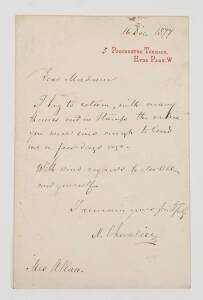 16 Dec 1877
5 Porchester Terrace,
Hyde Park. W
Dear Madam
I beg to return, with many
thanks and in stamps the
you were kind enough to lend
me a few days ago.
With kind regards to
and yourself
I remain yours faithfully
N. Chevalier
Mrs Allan